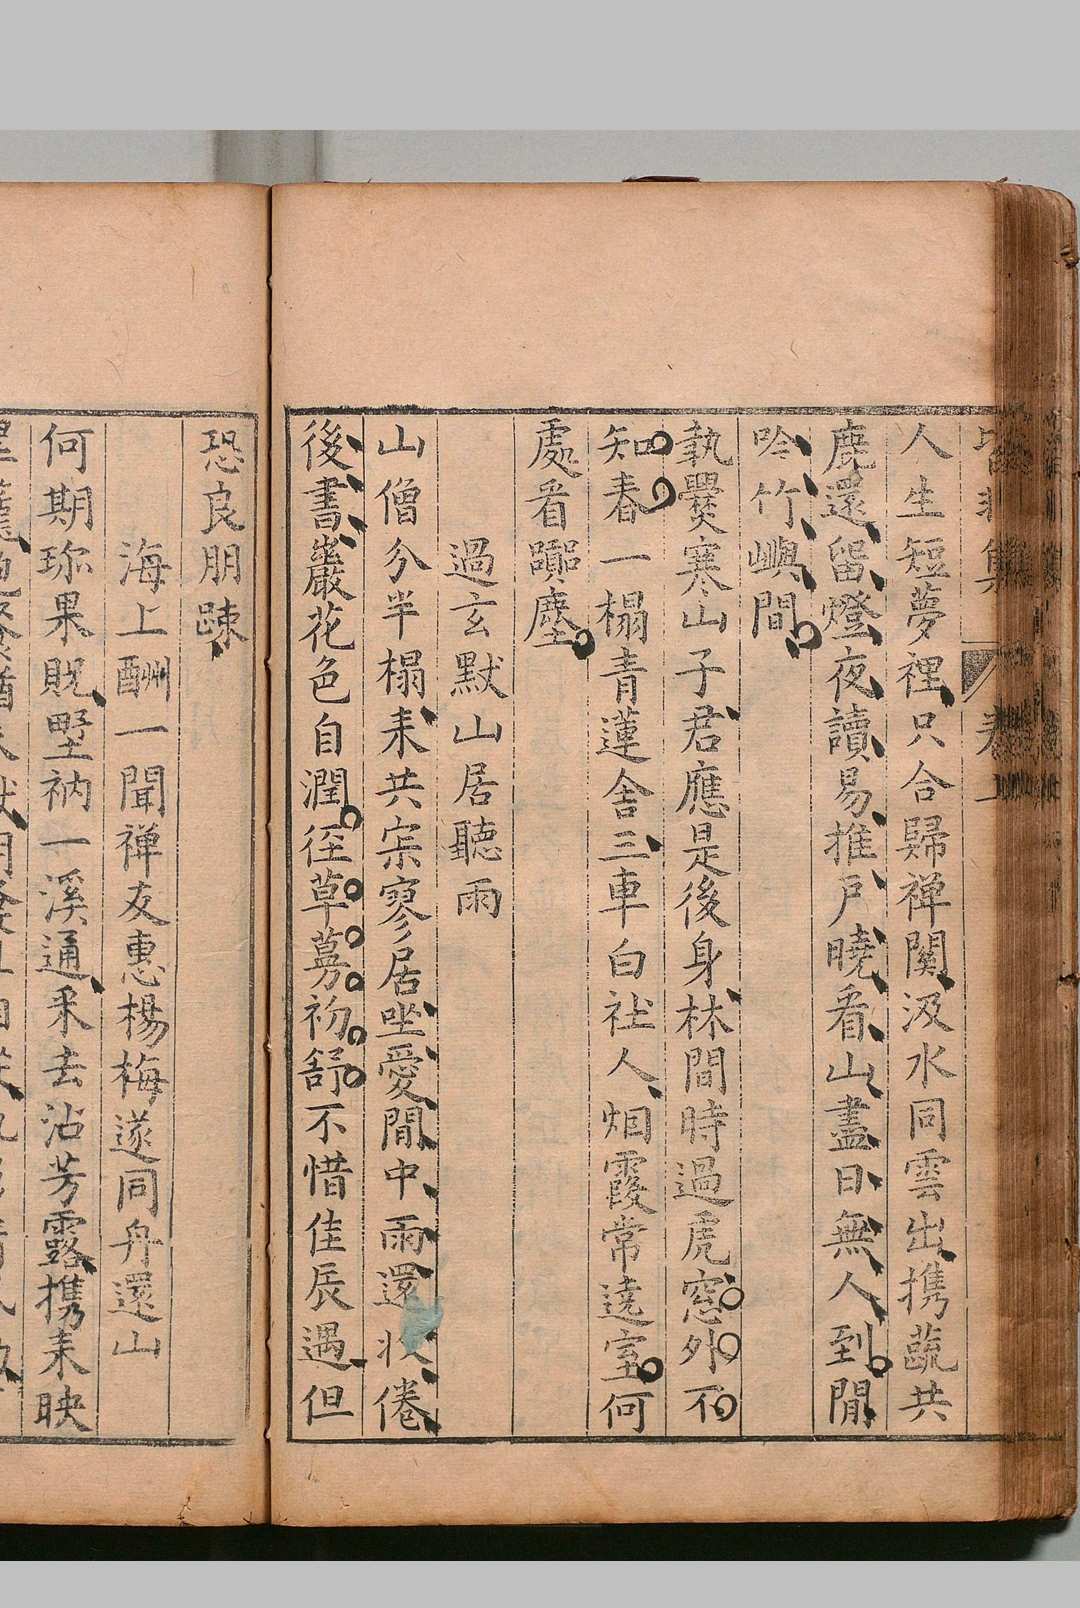 人生短夢裡只合歸禅關汲水同雲出携蔬共
鹿還留燈夜讀易推戶曉看山盡日無人到閒
吟竹嶼間
執爨寒山子君應是後身林間時過虎窓外不
知春一榻青蓮舍三車白社人烟霞常遶室何
處看躑塵
過玄默山居聽雨
山僧分半榻耒共宗寥居坐愛閒中雨還牧倦
後書巖花色自潤徑草蒭初舒不惜佳辰遇但
恐良朋踈
海上酬一聞禅友惠楊梅遂同舟還山
何期珎果貺墅衲一溪通釆去沾芳露携耒映